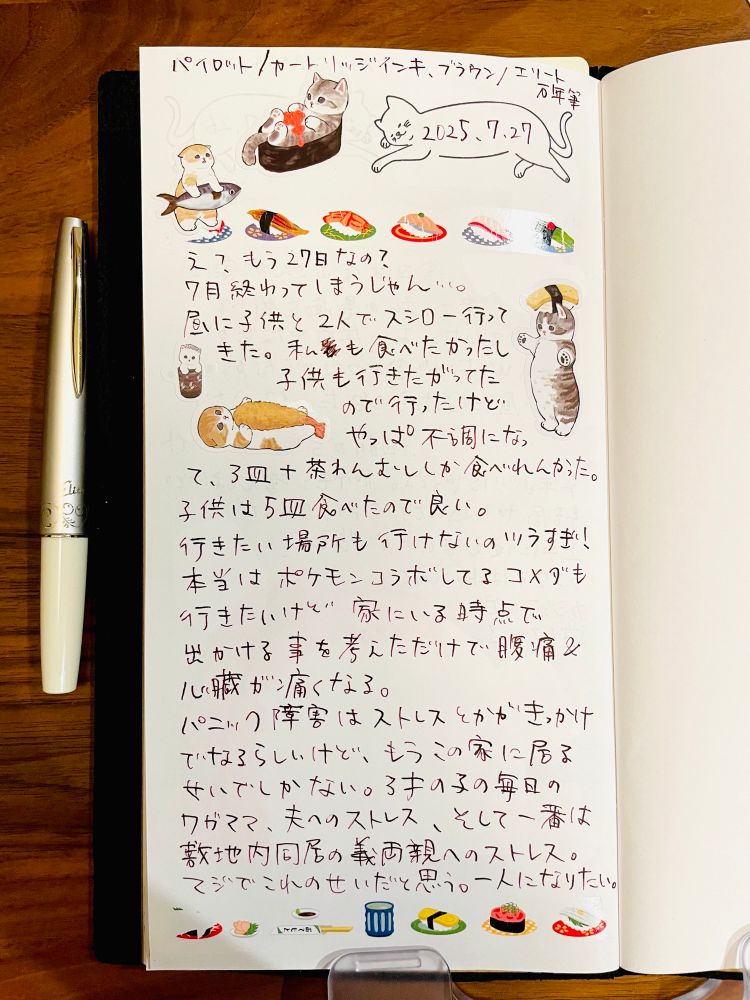 パイロット/カートリッジインキ、ブラウン/エリート
万年筆
2025.7.27
え?、もう27日なの?
7月終わってしまうじゃん…。
昼に子供と2人でスシロー行って
きた。私も食べたかったし
子供も行きたがってた
ので行ったけど
やっぱ不調になっ
て、3皿+茶わんむししか食べれんかった。
子供は5皿食べたので良い。
行きたい場所も行けないのツラすぎ!
本当はポケモンコラボしてるコメダも
行きたいけど家にいる時点で
出かける事を考えただけで腹痛&
心臓が痛くなる。
パニック障害はストレスとかがきっかけ
でなるらしいけど、もうこの家に居る
せいでしかない。3才の子の毎日の
ワガママ、夫へのストレス、そして一番は
敷地内同居の義両親へのストレス。
マジでこれのせいだと思う。一人になりたい。